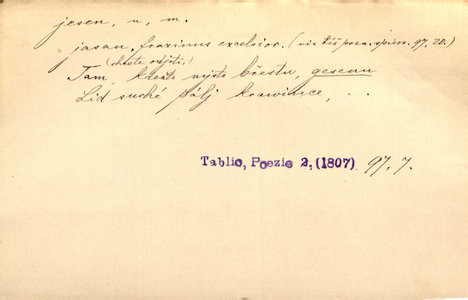 jesen, u, m.
= jasan, fraxinus excelsior. (viz též pozn. spisov. 97, 20.)
(chcete odjíti,)
Tam, kdežto nysto břestu, gesenu
Lid suché pálj krawince, . .
Tablic, Poezie 2, (1807) 97, 7.